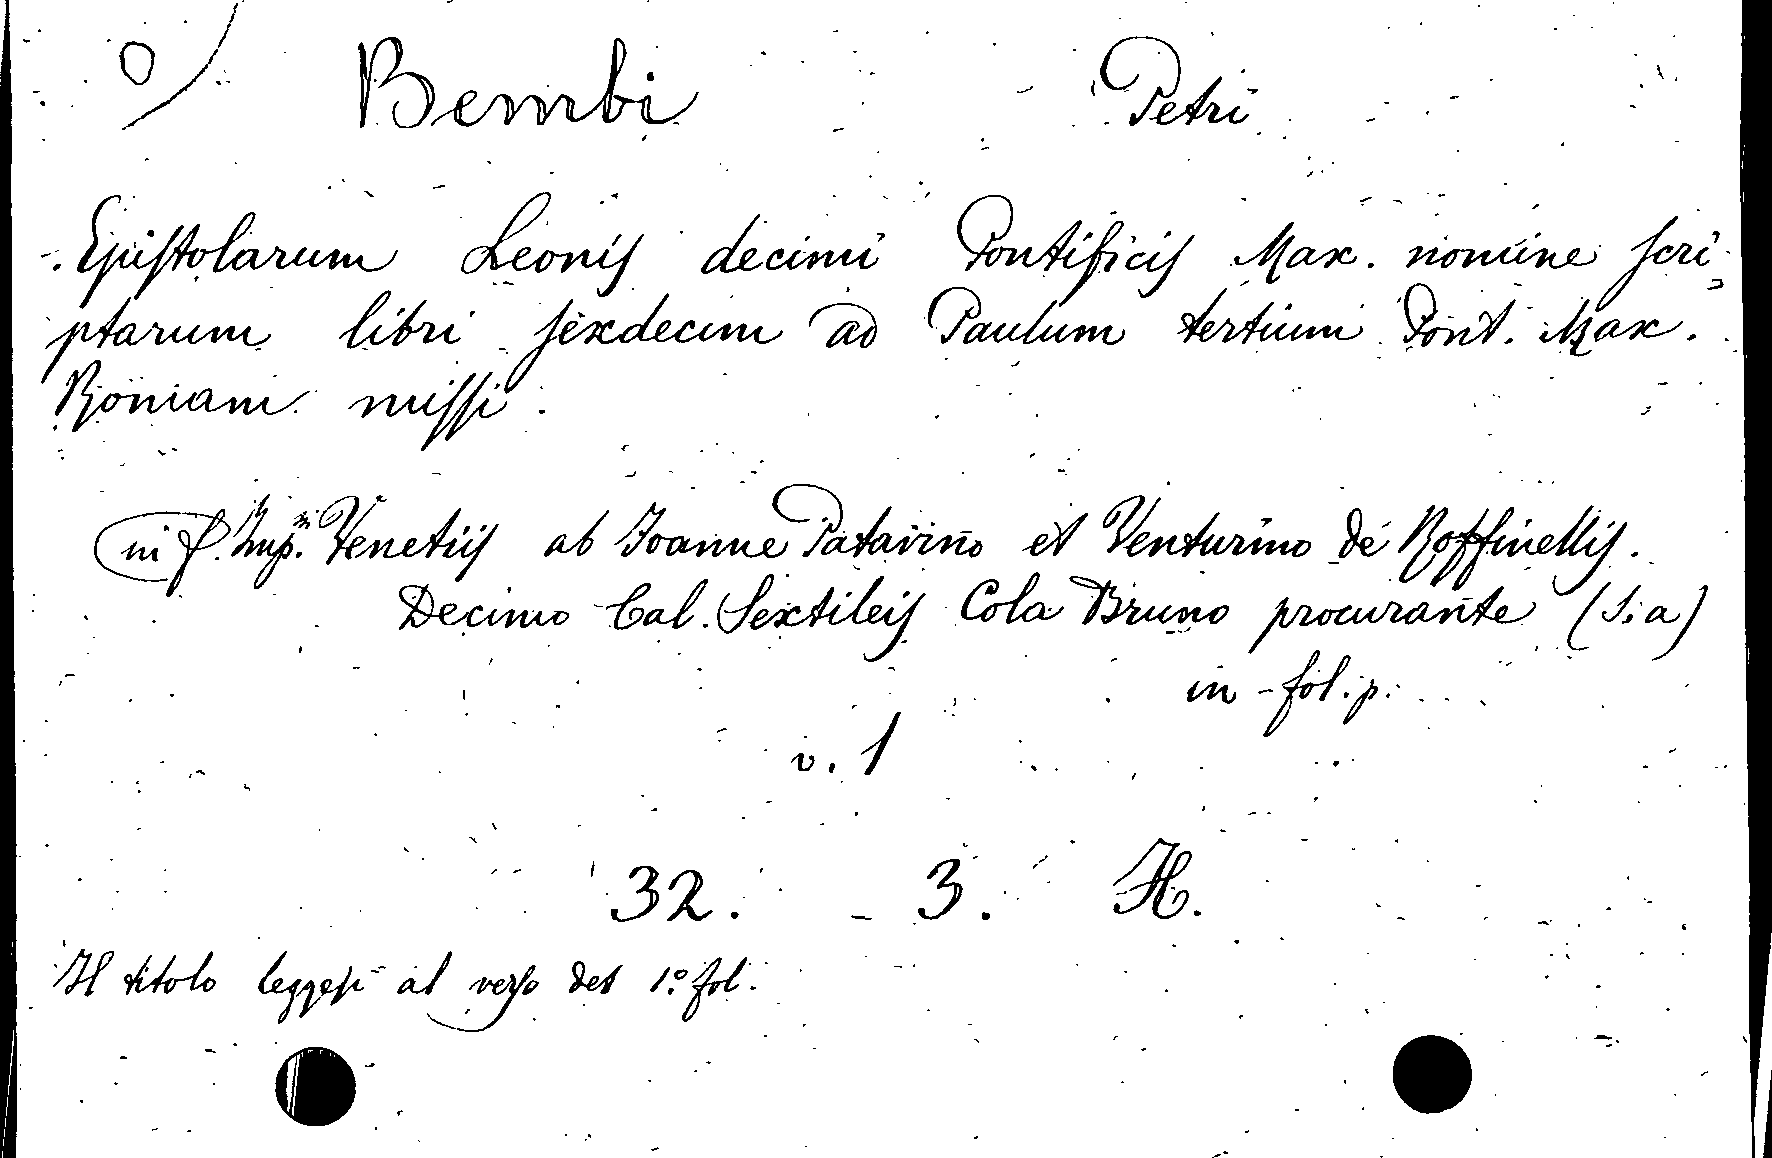 O
Bembi Petri
Epistolarum Leonis decimi Pontificis Max. nomine scri-
ptarum libri sexdecim ad Paulum tertium Pont. Max.
Romam missi.
in f. Imp. Venetiis ab Joanne Patavino et Venturino de Roffinellis.
Decimo Cal. Sextileis Cola Bruno procurante (s. a)
in-fol. p.
v. 1
32. 3. H.
Il titolo leggesi al verso del 1º fol.